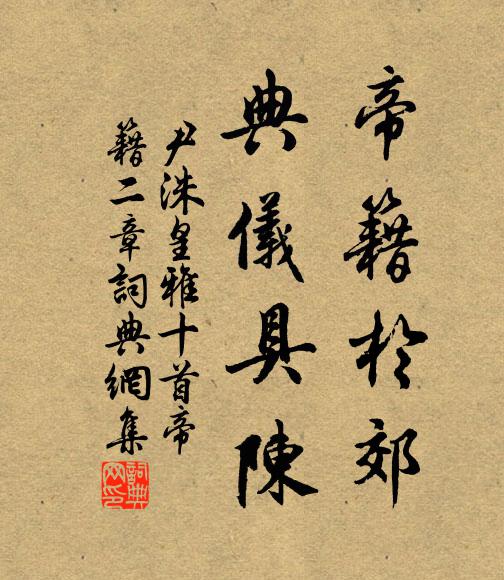 帝籍於郊
典儀具陳
尹洙皇雅十首帝
籍二章詞典網集
詞典
网印